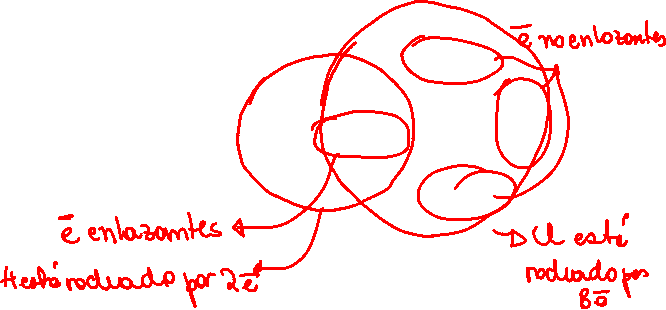 ē no enlazantes
ē enlazantes
H está rodeado por 2ē
Cl está
rodeado por
8ē